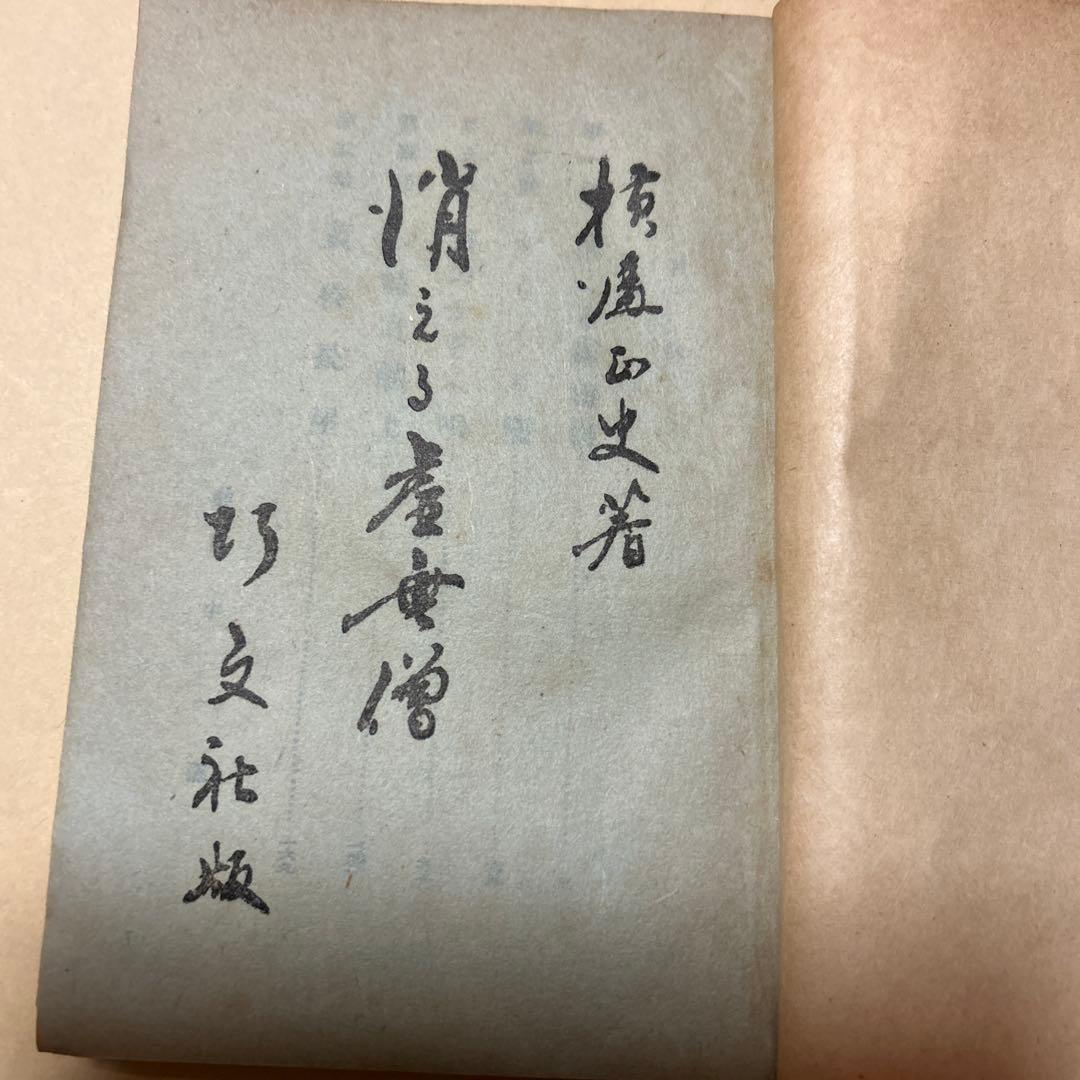 横溝正史著
消える虚無僧
巧文社版